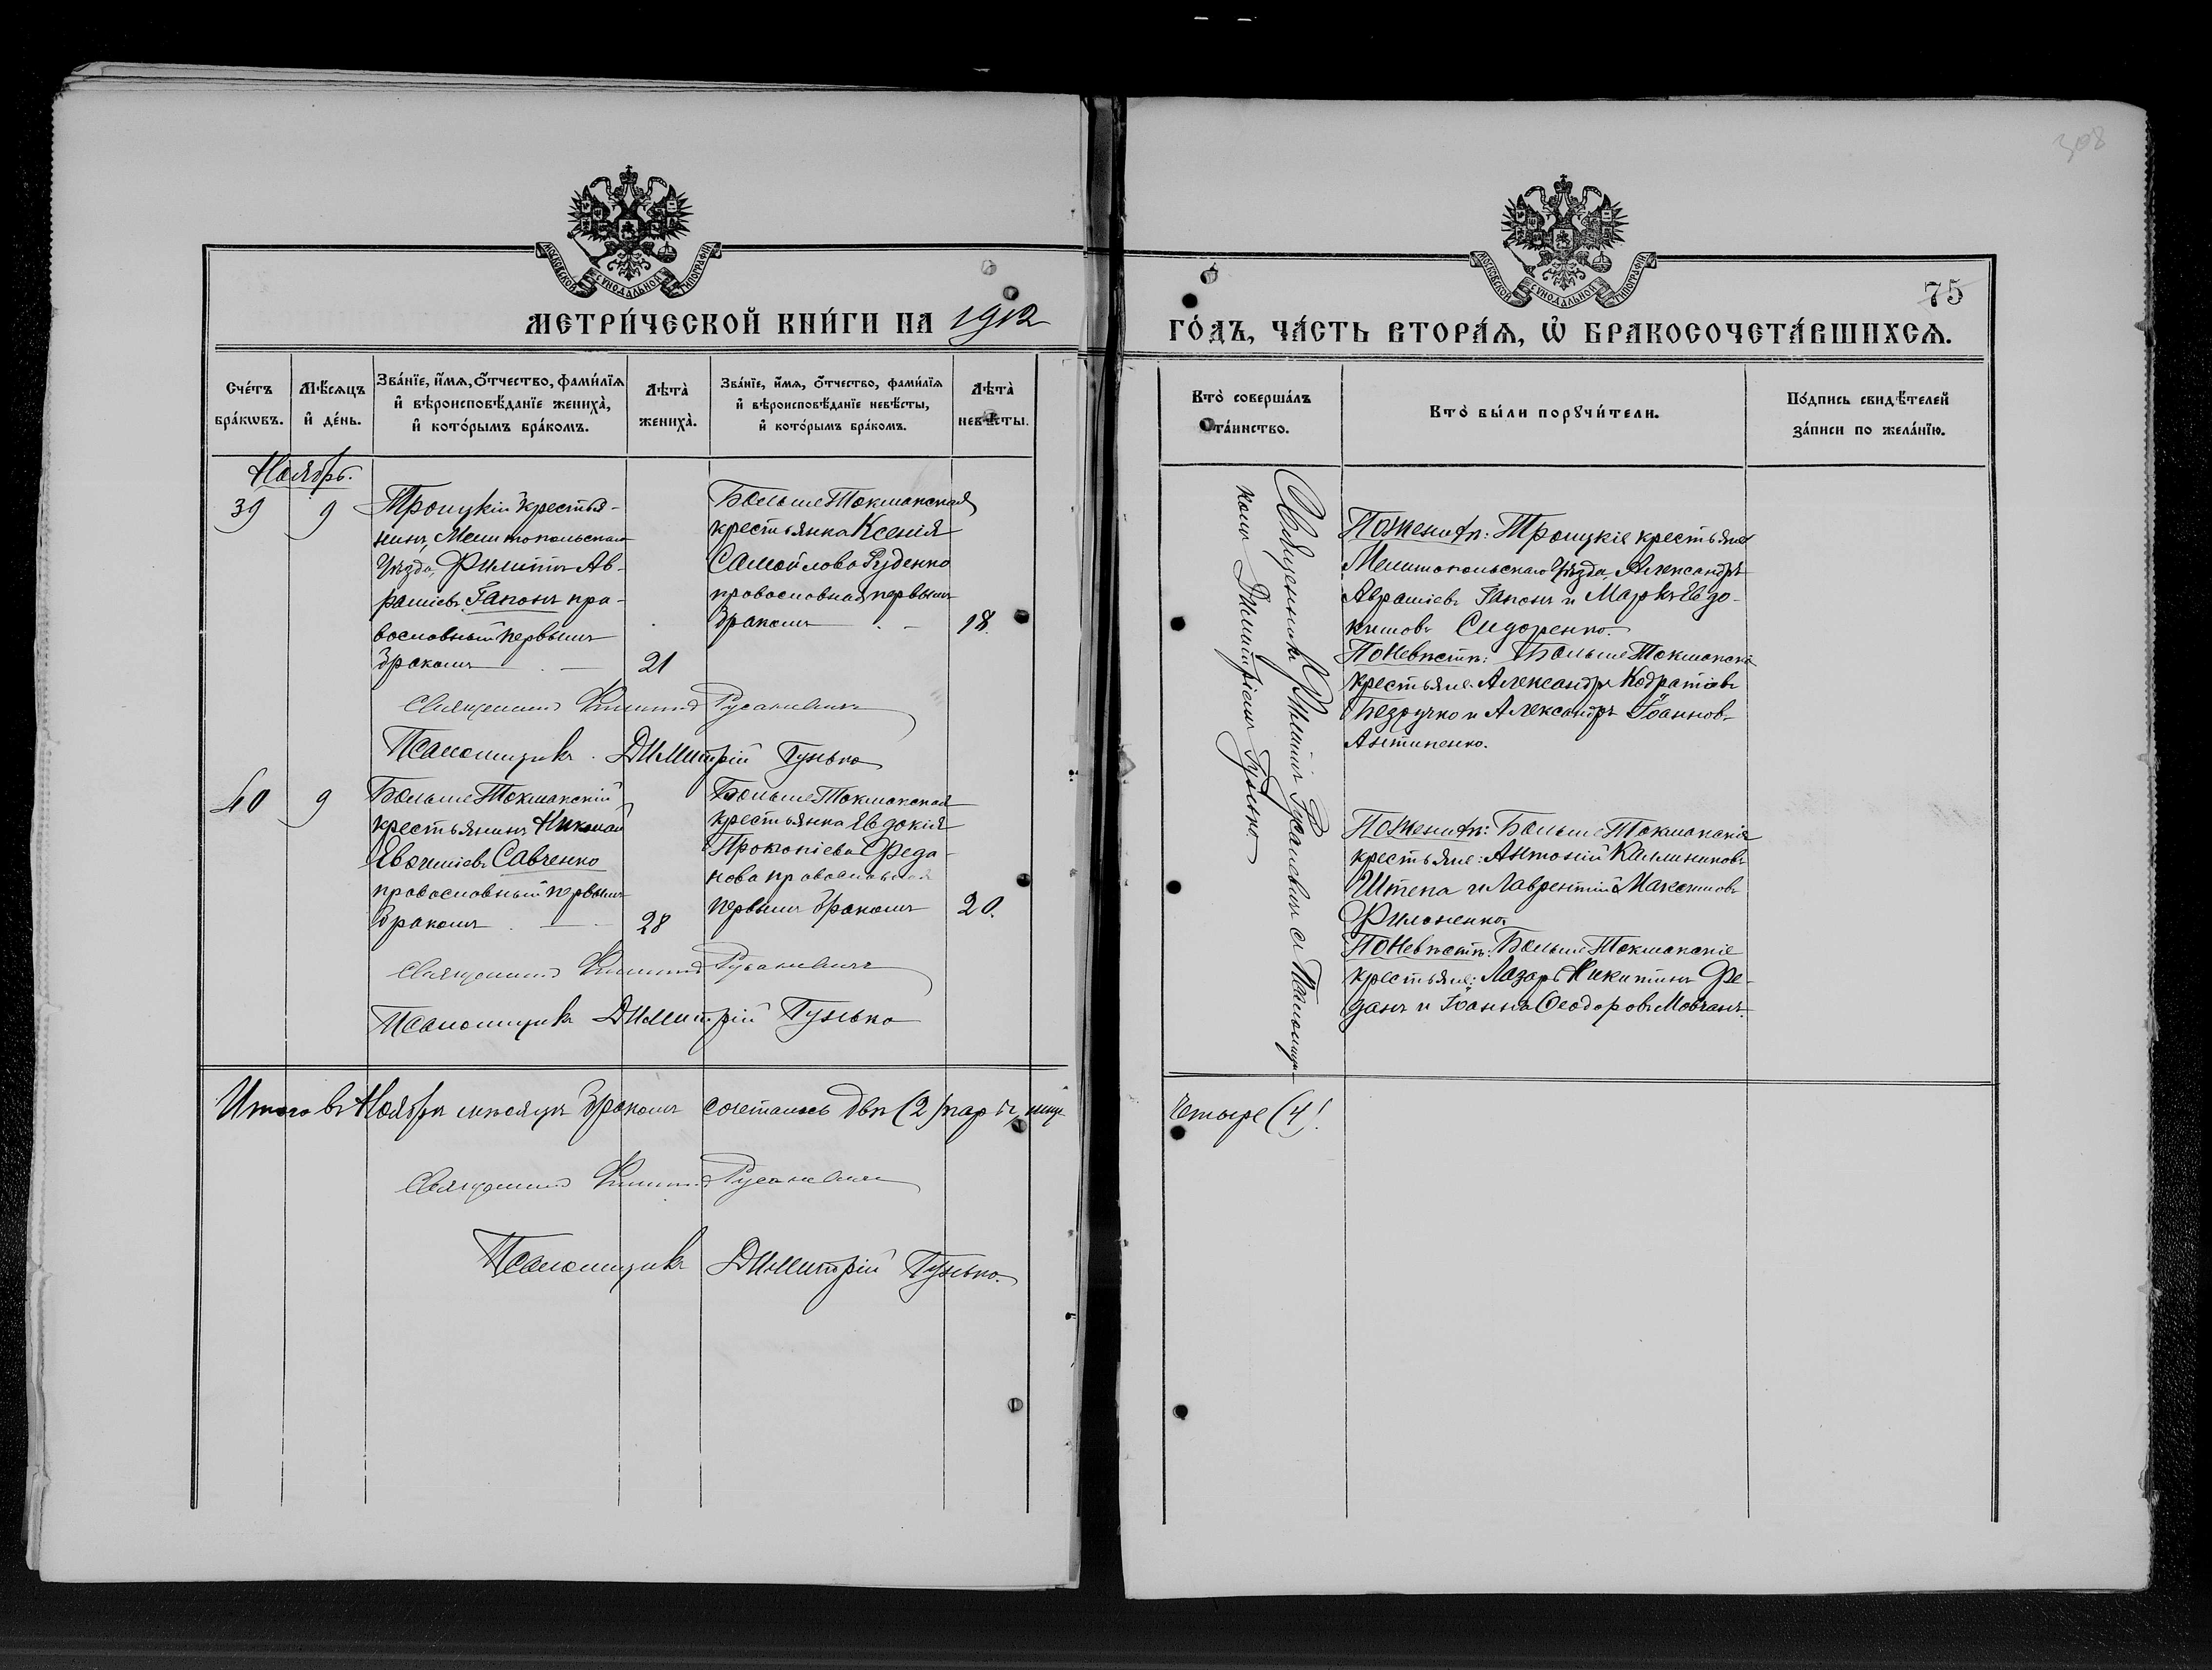 308
МОСКОВСКОЙ СѴНОДАЛЬНОЙ ТИПОГРАФІИ
МЕТРИ́ЧЕСКОЙ КНИ́ГИ НА 1912
Сче́тъ бра́кωвъ.
Мѣ́сѧцъ и҆ де́нь.
Зва́нїе, и҆́мѧ, ѻ҆́тчество, фами́лїѧ
и҆ вѣроисповѣ́данїе жениха̀,
и҆ кото́рымъ бра́комъ.
Лѣта̀ жениха̀.
Зва́нїе, и҆́мѧ, ѻ҆́тчество, фами́лїѧ
и҆ вѣроисповѣ́данїе невѣ́сты,
и҆ кото́рымъ бра́комъ.
Лѣта̀ невѣ́сты.
Ноябрь.
39
9
Троицкій крестья-
нинъ, Мелитопольскаго
Уѣзда, Филиппъ Ав-
раміевъ Гапонъ пра-
вославный первымъ
бракомъ
21
БольшеТокмакская
крестьянка Ксенія
Самойлова Руденко
православная первымъ
бракомъ
18.
Священникъ Филиппъ Русаневичъ
Псаломщикъ Димитрій Гунько
40
9
БольшеТокмакскій
крестьянинъ Николай
Евѳиміевъ Савченко
православный первымъ
бракомъ
28
БольшеТокмакская
крестьянка Евдокія
Прокопіева Феда-
нова православная
первымъ бракомъ
20.
Священникъ Филиппъ Русаневичъ
Псаломщикъ Димитрій Гунько
Итого въ Ноябрѣ мѣсяцѣ бракомъ сочеталось двѣ (2) пары, лицъ
Священникъ Филиппъ Русаневичъ
Псаломщикъ Димитрій Гунько.
МОСКОВСКОЙ СѴНОДАЛЬНОЙ ТИПОГРАФІИ
75
ГО́ДЪ, ЧА́СТЬ ВТОРА́Ѧ, Ѽ БРАКОСОЧЕТА́ВШИХСѦ.
Кто̀ соверша́лъ
та́инство.
Кто̀ бы́ли порꙋчи́тели.
По́дпись свидѣ́телей
за́писи по жела́нїю.
Священникъ Филиппъ Русаневичъ съ Псаломщи-
комъ Димитріемъ Гунько.
По Женихѣ: Троицкіе крестьяне
Мелитопольскаго Уѣзда, Александръ
Авраміевъ Гапонъ и Маркъ Евдо-
кимовъ Сидоренко.
По Невѣстѣ: БольшеТокмакскіе
крестьяне Александръ Кодратіевъ
Безручко и Александръ Іоанновъ
Антипенко.
По Женихѣ: БольшеТокмакскіе
крестьяне: Антоній Каллиниковъ
Штепа и Лаврентій Максимовъ
Филоненко.
По Невѣстѣ: БольшеТокмакскіе
крестьяне: Лазарь Никитинъ Фе-
данъ и Іоаннъ Ѳеодоровъ Мовчанъ.
четыре (4).